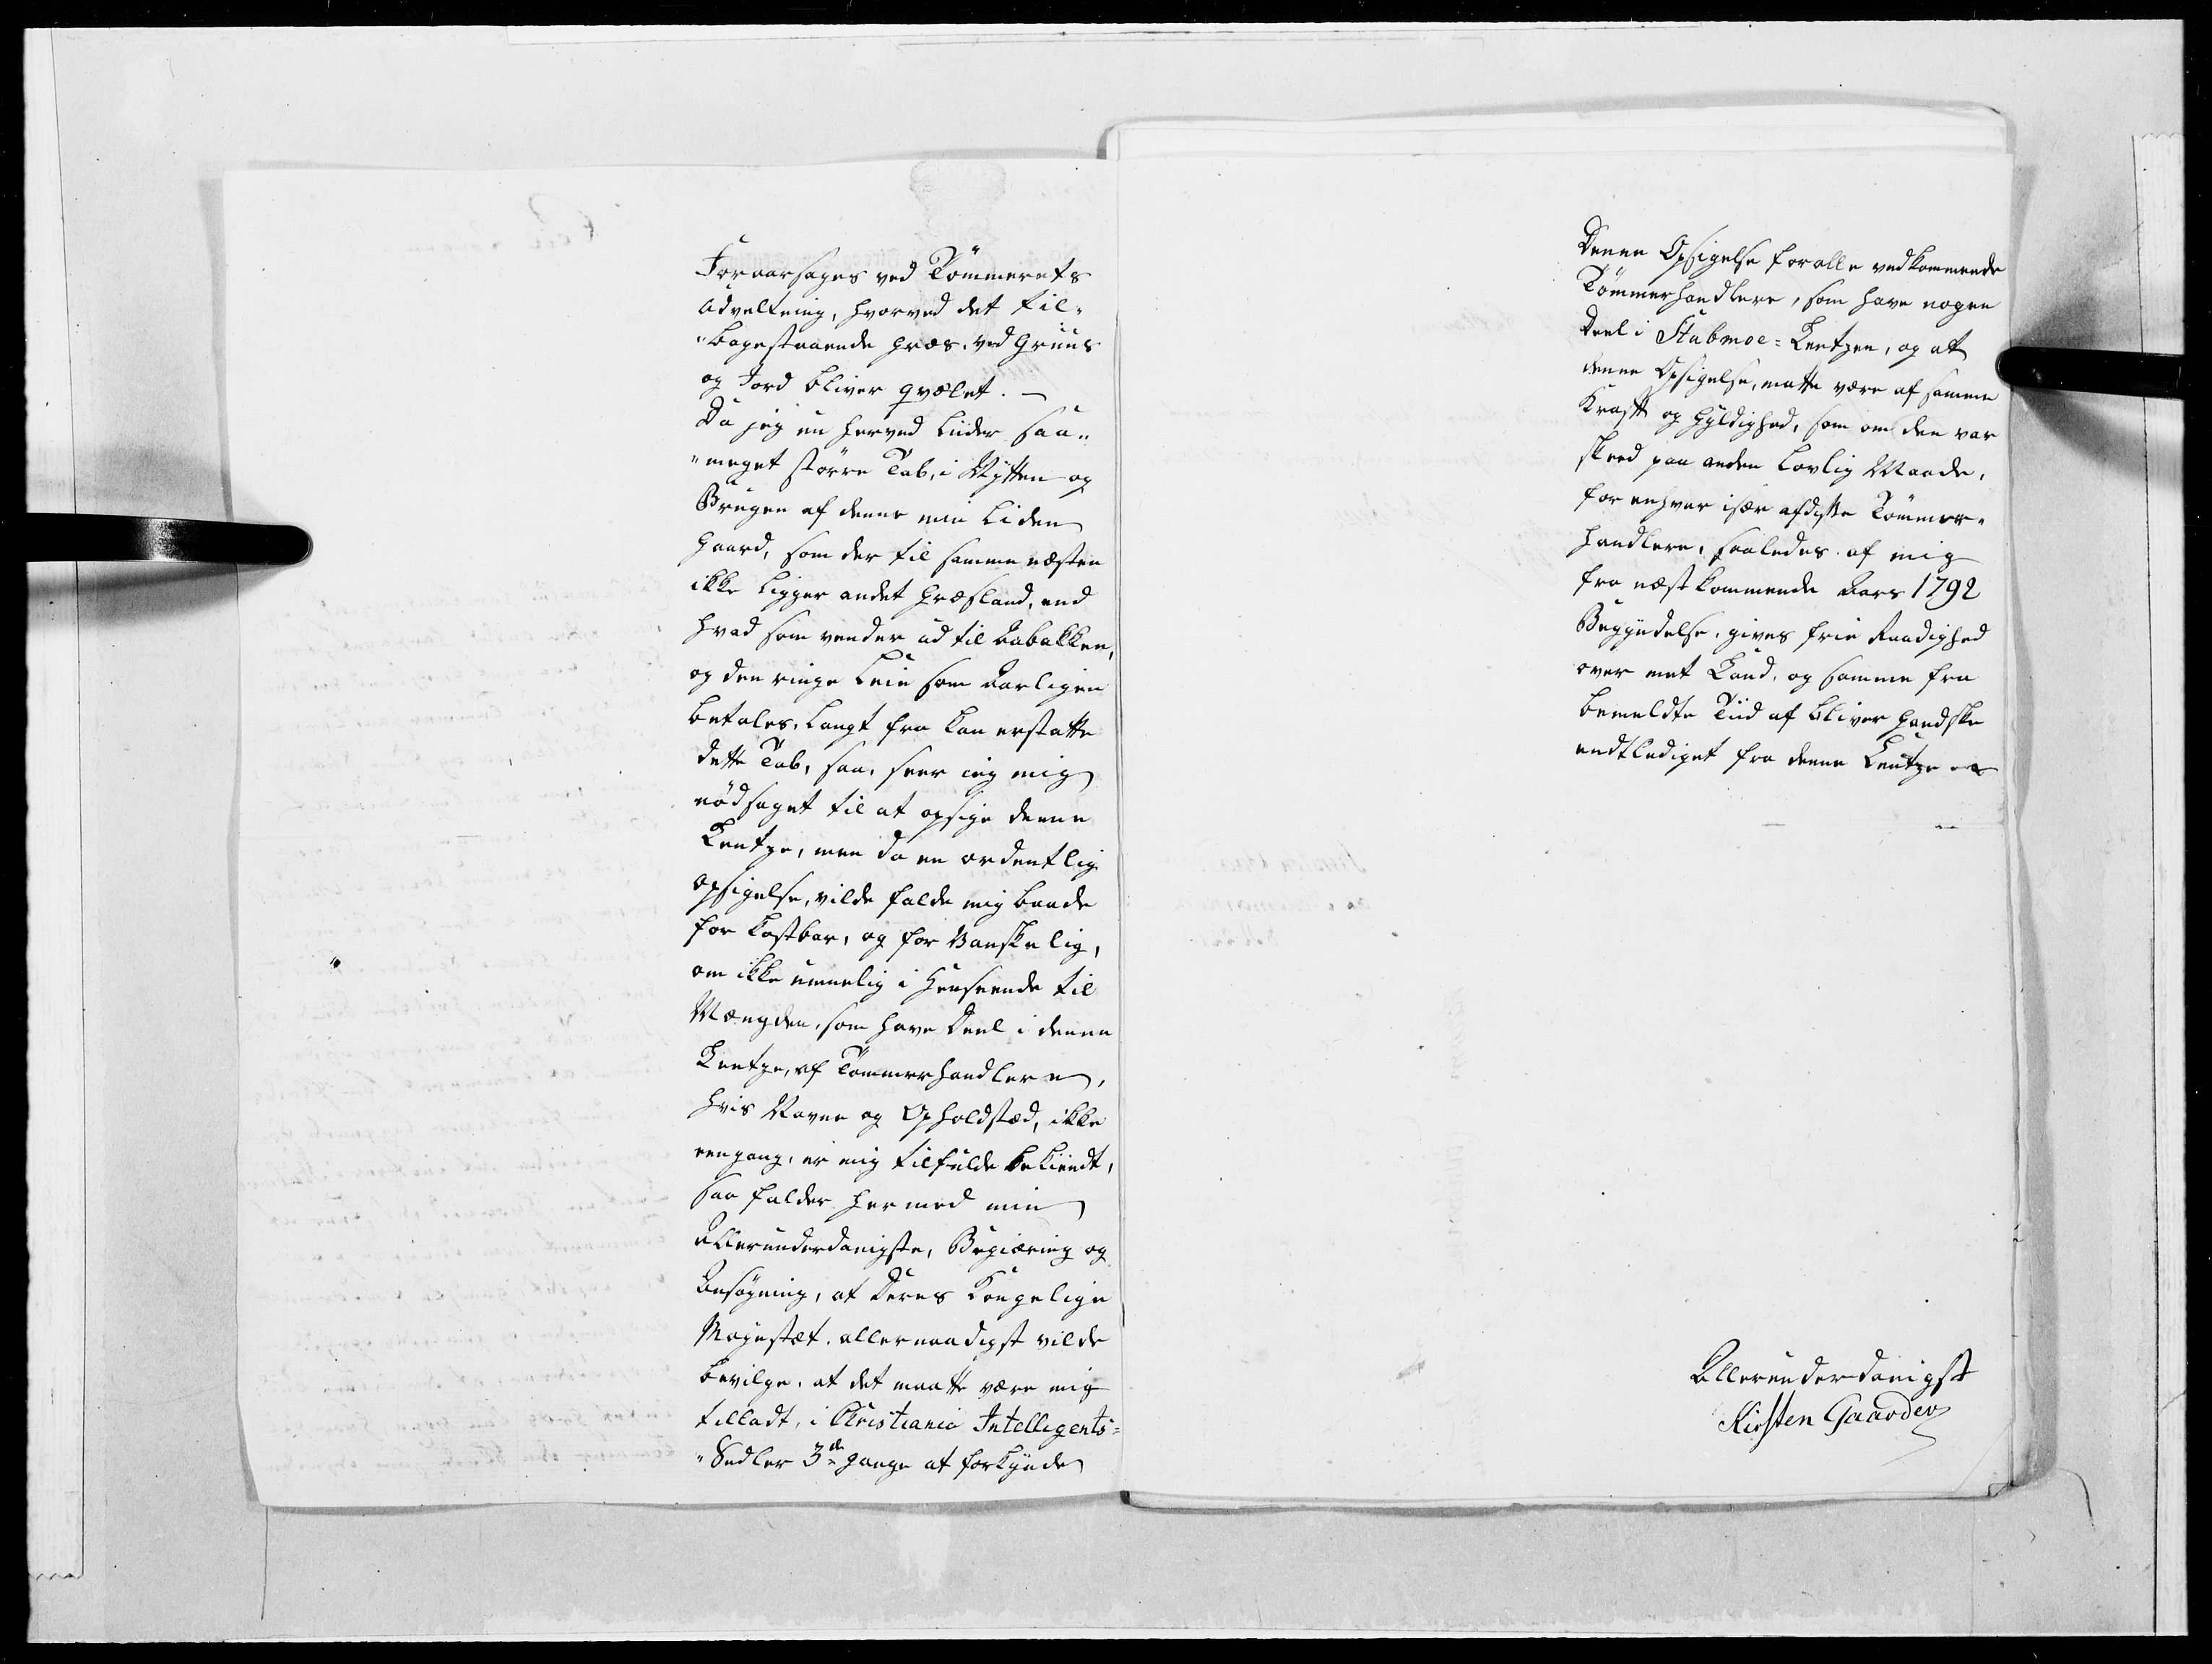 Foraarsages ved Tömmerets
Udveltning, hvorved det til-
"bagestaaende Græs, ved Gruus
og Jord bliver qvælet. —
Da jeg nu herved liider saa-
"meget större Tab, i Nÿtten og
Brugen af denne min liden
Gaard, som der til samme næsten
ikke ligger andet Græsland, end
hvad som vender ud til Aabakken,
og den ringe Leie som Aarligen
betales, langt fra kan erstatte
dette Tab, saa, seer ieg mig
nödsaget til at opsige denne
Lentze, men da en ordentlig
opsigelse, vilde falde mig baade
for kostbar, og for Vanskelig,
om ikke umuelig i Henseende til
Mængden, som have Deel i denne
Lentze, af Tömmerhandlere,
hvis Navne og Opholdstæd, ikke
eengang, er mig tilfulde bekiendt,
saa falder hermed min
Allerunderdanigste, Begiæring og
Ansögning, at Deres Kongelige
Mayestæt, allernaadigst vilde
bevilge, at det maatte være mig
tilladt, i Christiania Intelligents=
"Sedler 3de gange at forkÿnde
Denne Opsigelse for alle vedkommende
Tömmerhandlere, som have nogen
Deel i Stubmoe=Lentzen, og at
denne Opsigelse, matte være af samme
Kraft og Gÿldighed, som om den var
skeed paa anden Lovlig Maade,
for enhver især af diste Tömmer-
handlere, saaledes af mig
fra næstkommende Aars 1792
Begÿndelse, gives frie Raadighed
over met Land, og samme fra
bemeldte Tiid af bliver gandske
endtlediget fra denne Lentze
Allerunderdanigst
Kirsten Gaarder